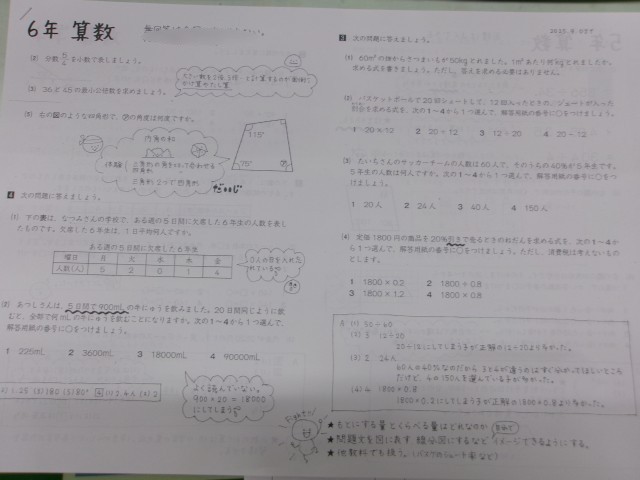 6年 算数
(2) 分数5/4を小数で表しましょう。
(3) 36と45の最小公倍数を求めましょう。
かけ算やたし算
(5) 右の図のような四角形で、㋐の角度は何度ですか。
内角の和
体験!
四角形
三角形2つで四角形
だいじ
115°
75°
㋐
4 次の問題に答えましょう。
(1) 下の表は、なつみさんの学校で、ある週の5日間に欠席した6年生の人数を表し
たものです。欠席した6年生は、1日平均何人ですか。
ある週の5日間に欠席した6年生
曜日 月 火 水 木 金
人数(人) 5 2 0 1 4
0人の日を入れ忘
れているね
(2) あつしさんは、5日間で900mLの牛にゅうを飲みました。20日間同じように飲
むと、全部で何mLの牛にゅうを飲むことになりますか。次の1~4から1つ選んで、
解答用紙の番号に○をつけましょう。
1 225mL 2 3600mL 3 18000mL 4 90000mL
1.25 (3)180 (5)80° 4 (1)2.4人 (2)2
よく読んでいない。
900×20=18000
にしてしまう
3 次の問題に答えましょう。
(1) 60m²の畑からさつまいもが50kgとれました。1m²あたり何kgとれましたか。
求める式を書きましょう。ただし、答えを求める必要はありません。
(2) バスケットボールで20回シュートして、12回入ったときの、シュートが入った
割合を求める式を、次の1~4から1つ選んで、解答用紙の番号に○をつけましょう。
1 20×12 2 20÷12 3 12÷20 4 20-12
(3) たいちさんのサッカーチームの人数は60人で、そのうちの40%が5年生です。
5年生の人数は何人ですか。次の1~4から1つ選んで、解答用紙の番号に○をつ
けましょう。
1 20人 2 24人 3 40人 4 150人
(4) 定価1800円の商品を20%引きで売るときのねだんを求める式を、次の1~4か
ら1つ選んで、解答用紙の番号に○をつけましょう。ただし、消費税は考えないもの
とします。
1 1800×0.2 2 1800÷0.8
3 1800×1.2 4 1800×0.8
(1) 50÷60
(2) 3 12÷20
20÷12にしてしまう子が正解の12÷20より多かった。
(3) 2 24人
60人の40%なのだから
だけど、4の150人を選んでいる子が多かった。
(4) 4 1800×0.8
1800×0.2にしてしまう子が正解の1800×0.8より多かった。
★もとにする量とくらべる量はどれなのか
★問題文を図に表す 線分図にするなどイメージできるようにする。
★他教科でも扱う。(バスケのシュート率など)